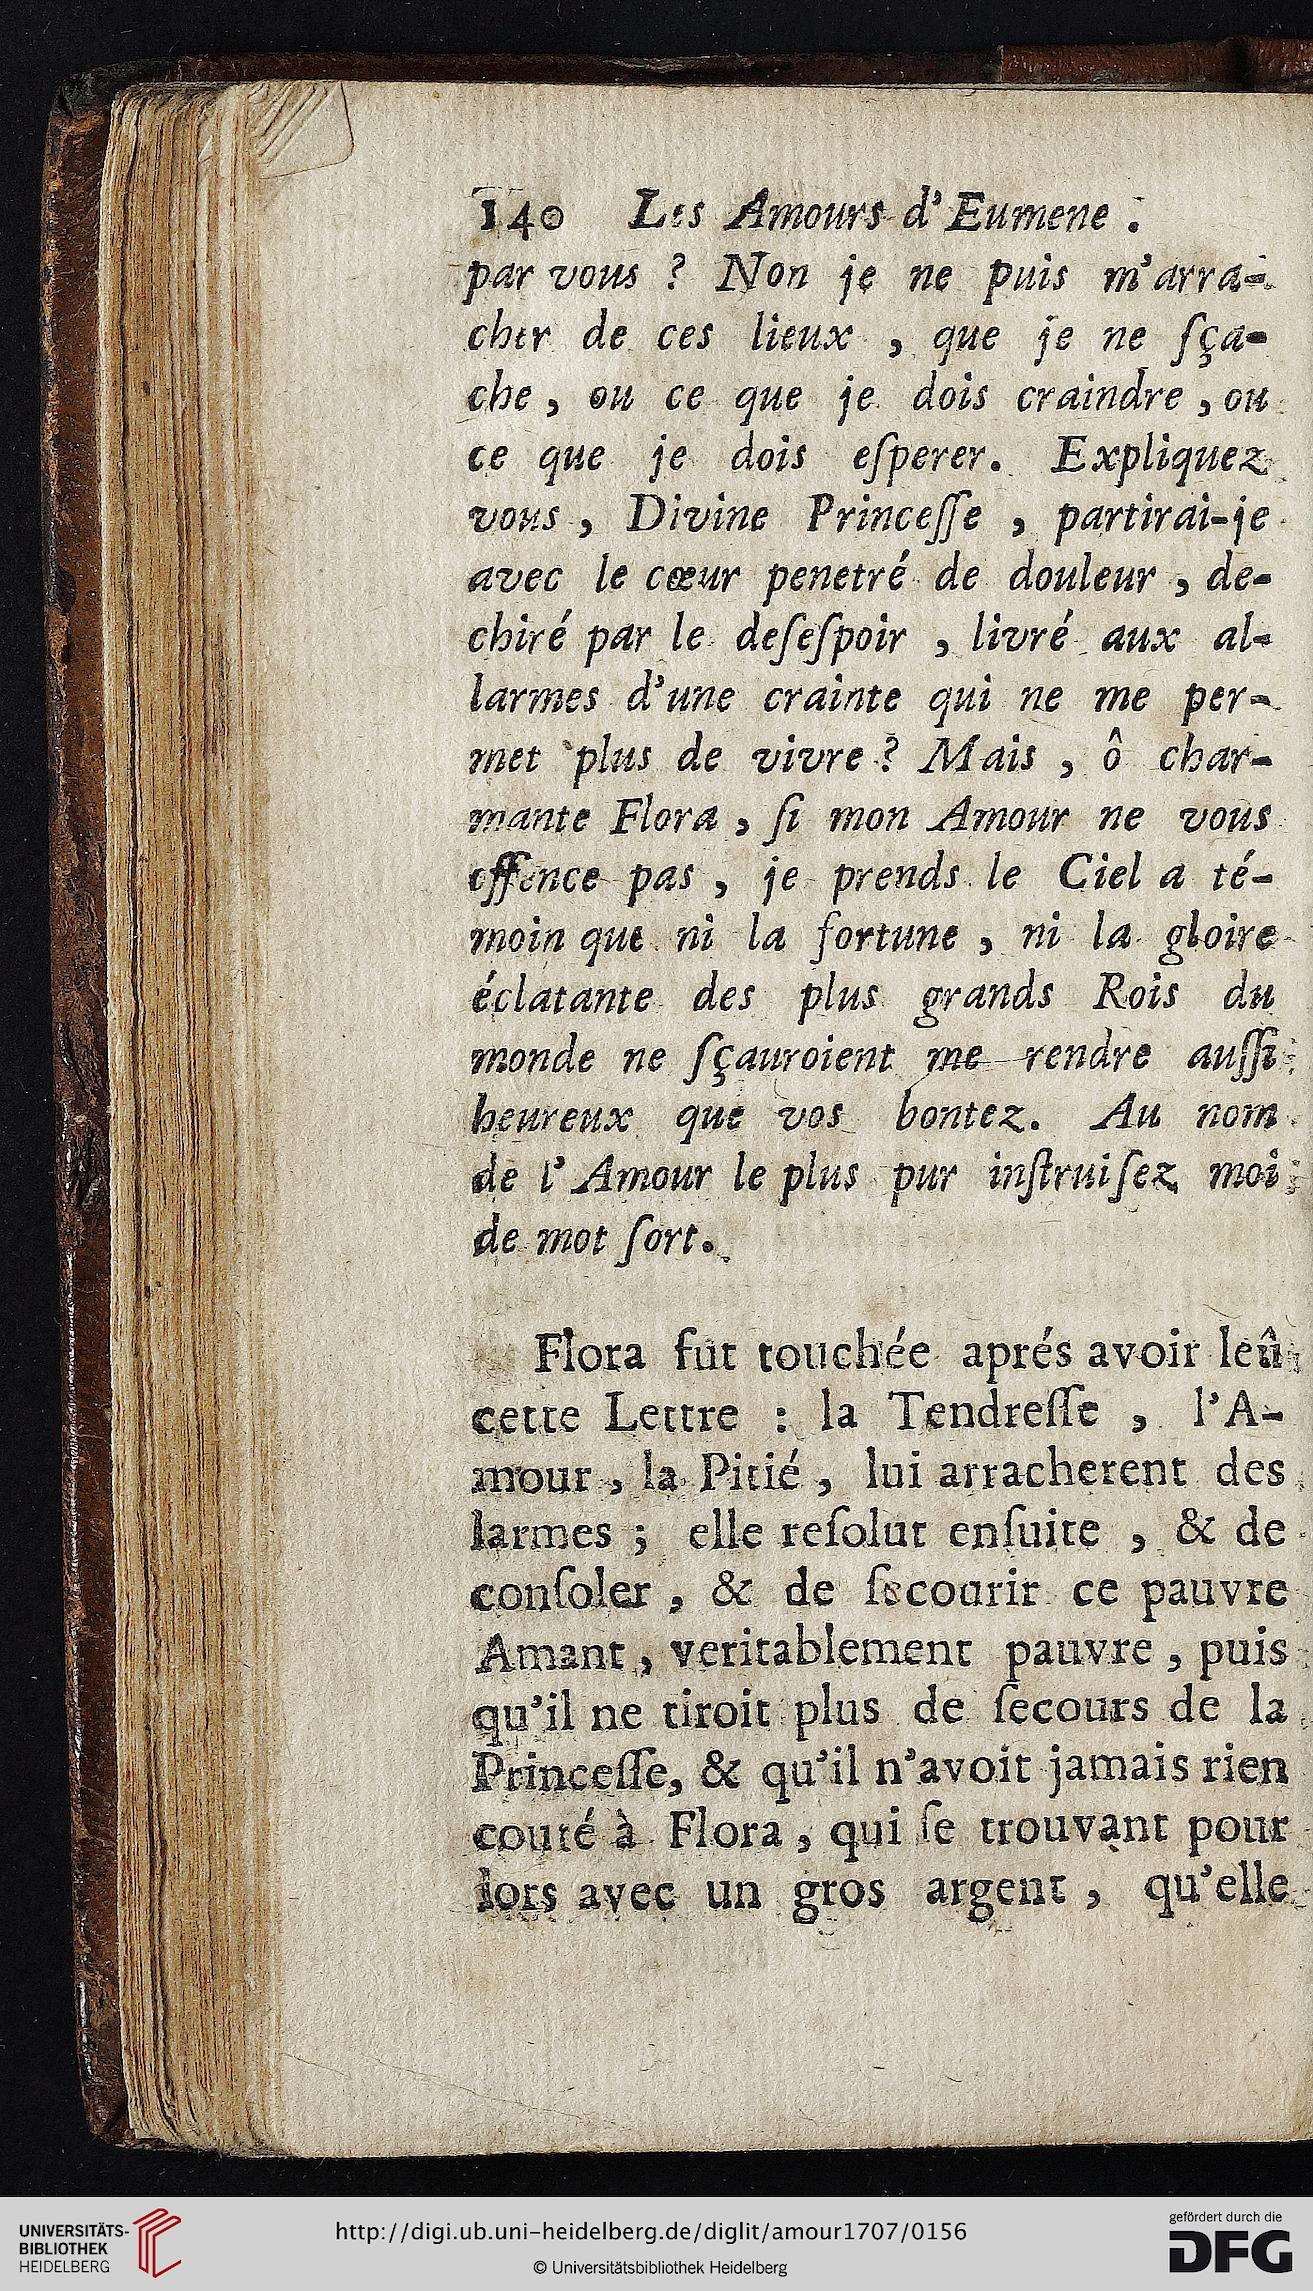 140 Les Amours d'Eumene.
par vous ? Non je ne puis m'arra-
cher de ces lieux , que je ne ſça-
che , ou ce que je dois craindre , ou
ce que je dois eſperer. Expliquez
vous , Divine Princeſſe , partirai-je
avec le cœur penetré de douleur , de-
chiré par le deſeſpoir , livré aux al-
larmes d'une crainte qui ne me per-
met plus de vivre ? Mais , ô char-
mante Flora , ſi mon Amour ne vous
offence pas , je prends le Ciel a té-
moin que ni la fortune , ni la gloire
éclatante des plus grands Rois du
monde ne ſçauroient me rendre auſſi
heureux que vos bontez. Au nom
de l'Amour le plus pur inſtruiſez moi
de mot ſort.
Flora fut touchée aprés avoir leû
cette Lettre : la Tendreſſe , l'A-
mour , la Pitié , lui arracherent des
larmes ; elle reſolut enſuite , & de
conſoler , & de ſecourir ce pauvre
Amant , veritablement pauvre , puis
qu'il ne tiroit plus de ſecours de la
Princeſſe, & qu'il n'avoit jamais rien
couté à Flora , qui ſe trouvant pour
lors avec un gros argent , qu'elle
UNIVERSITÄTS-
BIBLIOTHEK
HEIDELBERG
http://digi.ub.uni-heidelberg.de/diglit/amour1707/0156
© Universitätsbibliothek Heidelberg
gefördert durch die
DFG